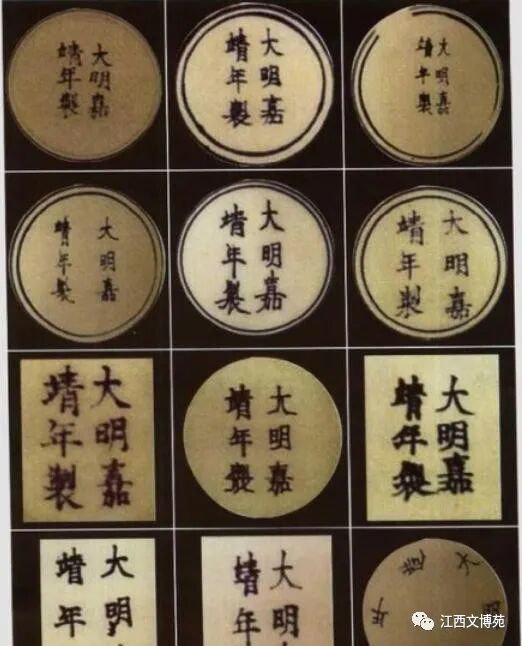 大明嘉
靖年製
大明嘉
靖年製
大明嘉
靖年製
大明嘉
靖年製
大明嘉
靖年製
大明嘉
靖年製
大明嘉
靖年製
大明嘉
靖年製
大明嘉
靖年製
大明
靖年
大明
靖年
江西文博苑